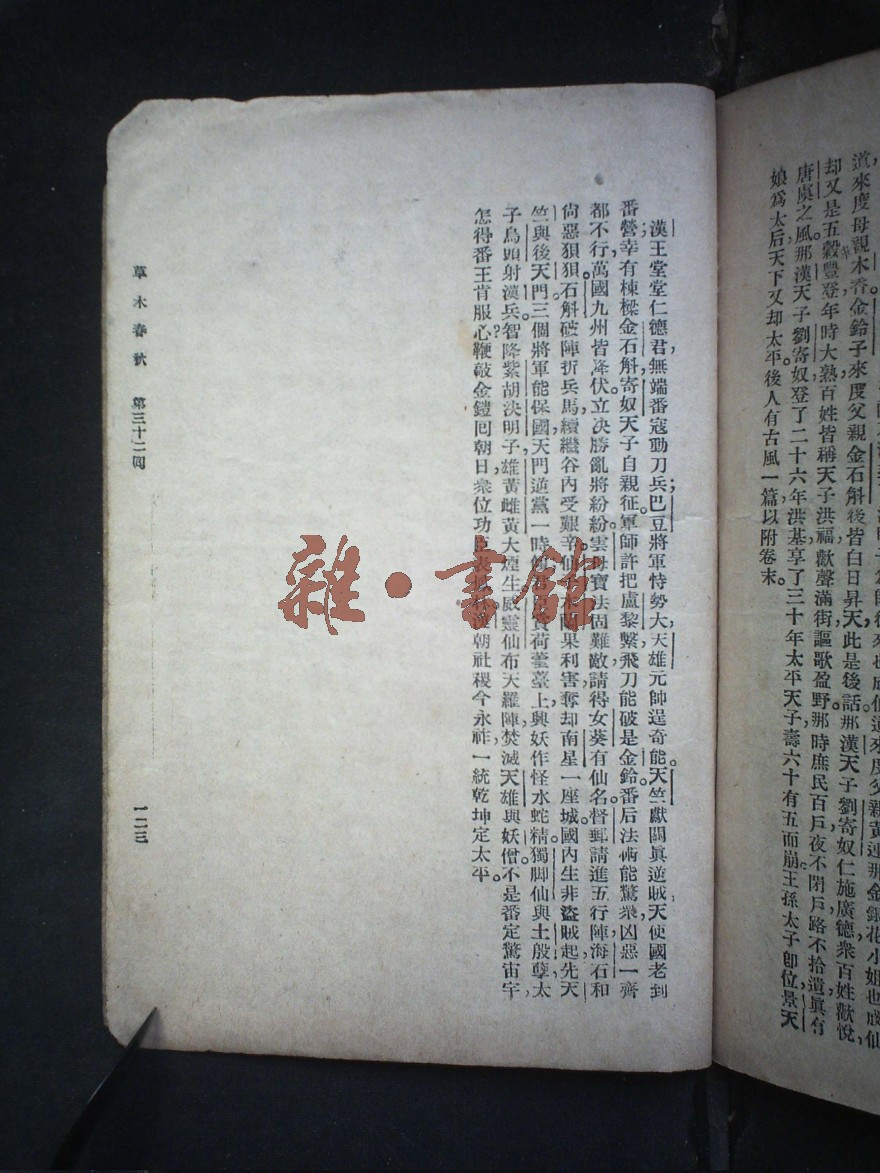 道來度母親木香金鈴子來度父親金石斛後皆白日昇天此是後話那漢天子劉寄奴仁施廣德衆百姓歡悅，
却又是五穀豐登年時大熟百姓皆稱天子洪福歡聲滿街謳歌盈野那時庶民百戶夜不閉戶路不拾遺眞有
唐虞之風那漢天子劉寄奴登了二十六年洪基享了三十年太平天子壽六十有五而崩王孫太子卽位景天
娘爲太后天下又却太平後人有古風一篇以附卷末。
漢王堂堂仁德君，無端番寇動刀兵；巴豆將軍恃勢大，天雄元帥逞奇能。天竺獻關眞逆賊，天使國老到
番營；幸有棟樑金石斛，寄奴天子自親征。軍師許把盧黎繫，飛刀能破是金鈴。番后法術能驚衆，凶惡一齊
都不行，萬國九州皆降伏。立決勝亂將紛紛，雲母寶法固難敵，請得女葵有仙名。督郵請進五行陣，海石和
尙惡狠狠。石斛破陣折兵馬，續繼谷內受艱辛，仙 果利害，奪却南星一座城。國內生非盜賊起，先天
竺與後天門。三個將軍能保國，天門逆黨一時 荷薹臺上，興妖作怪水蛇精。獨脚仙與土殷孽，太
子烏頭射漢兵。智降紫胡決明子，雄黃雌黃大煙生。威靈仙布天羅陣，焚滅天雄與妖僧。不是番定驚宙宇，
怎得番王肯服心？鞭敲金鐙囘朝日，衆位功臣表 漢朝社稷今永祚，一統乾坤定太平。
草木春秋　第三十二囘　一二三
雜·書館